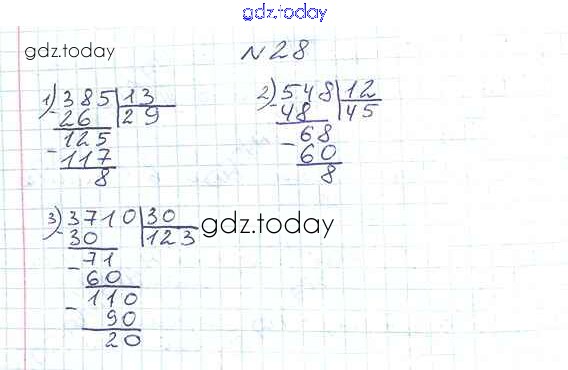 gdz.today
gdz.today
№ 28
1) 385 | 13
- 26 | 29
125
- 117
8
2) 548 | 12
- 48 | 45
68
- 60
8
3) 3710 | 30
- 30 | 123
71
- 60
110
- 90
20
gdz.today